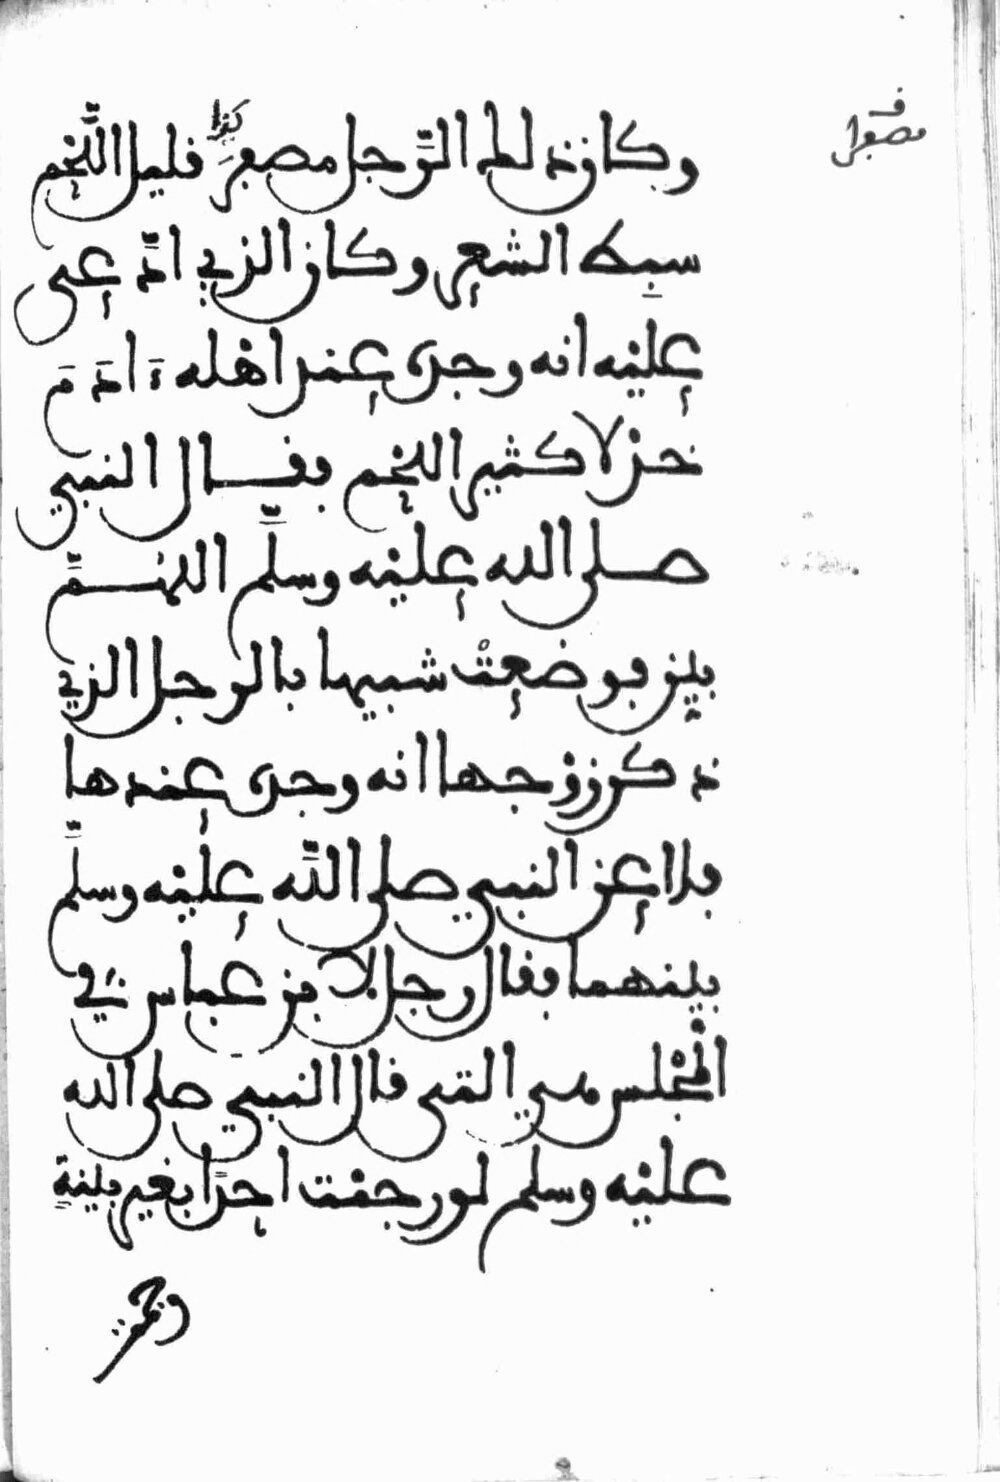 مصفرا
وكان ذلك الرجل مصفر كذا قليل اللحم
سبط الشعر وكان الذي ادعى
عليه انه وجده عند اهله ءادم
خدلا كثير اللحم فقال النبي
صلى الله عليه وسلم اللهم
بين فوضعت شبيها بالرجل الذي
ذكر زوجها انه وجده عندها
فلاعن النبي صلى الله عليه وسلم
بينهما فقال رجل لابن عباس في
المجلس هي التي قال النبي صلى الله
عليه وسلم لو رجمت احدا بغير بينة